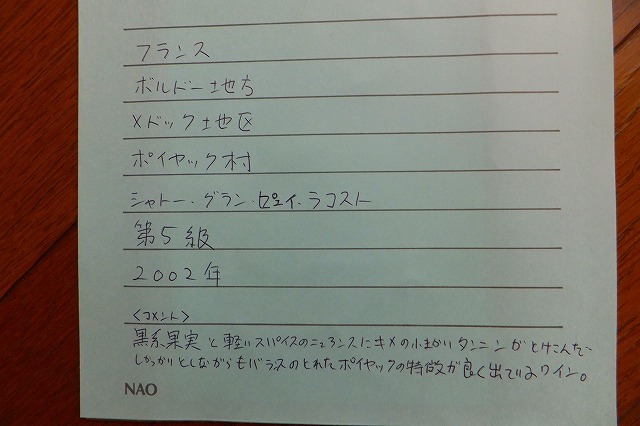 フランス
ボルドー地方
メドック地区
ポイヤック村
シャトー・グラン・ピュイ・ラコスト
第5級
2002年
〈コメント〉
黒系果実と軽いスパイスのニュアンスにキメの小まかいタンニンがとけこんだ
しっかりとしながらもバランスのとれたポイヤックの特徴が良く出ているワイン。
NAO